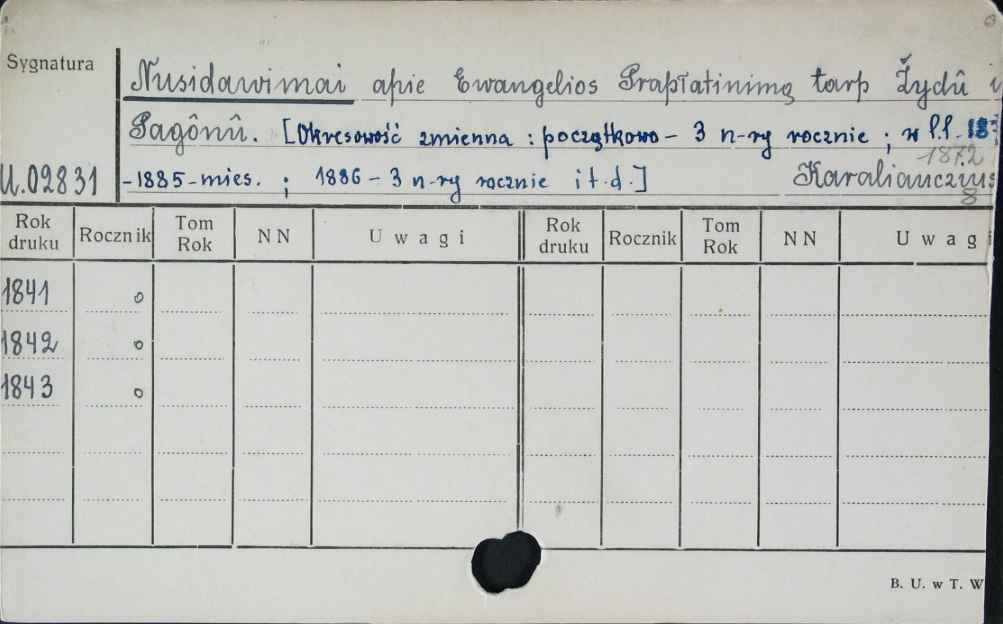 Sygnatura
Nusidawimai apie Ewangelios Praplatinimą tarp Żydû i
Pagônû. [Okresowość zmienna : początkowo – 3 n-ry rocznie ; w l.l. 18
1872
U.02831
-1885-mies. ; 1886 – 3 n-ry rocznie i t.d.] Karaliauczius
8
Rok druku Rocznik Tom Rok NN Uwagi Rok druku Rocznik Tom Rok NN Uwagi
1841 o
1842 o
1843 o
B. U. w T. W